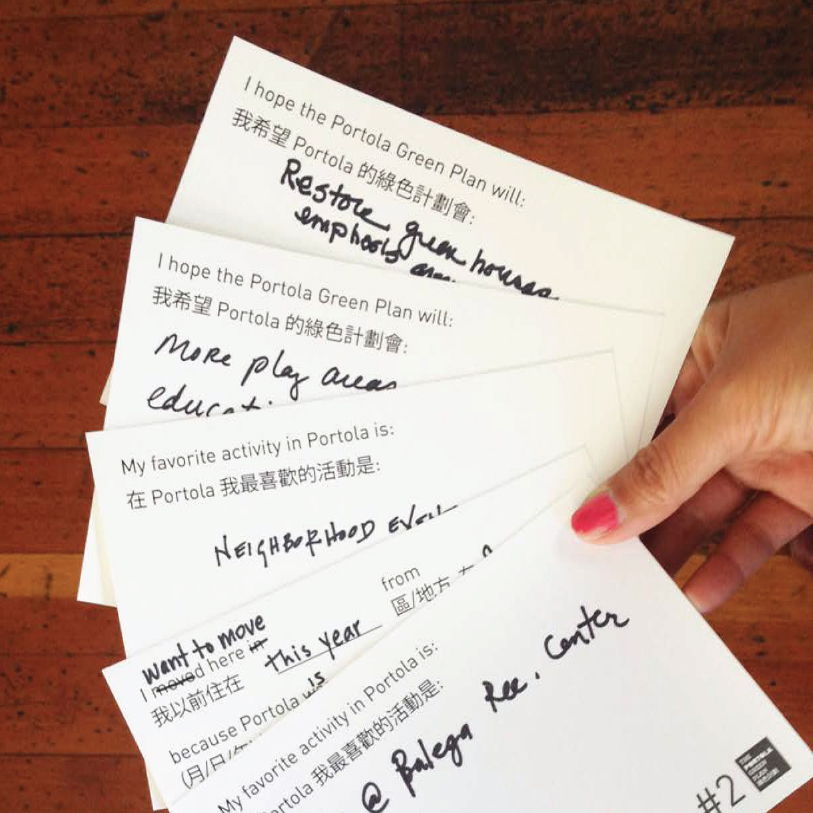 I hope the Portola Green Plan will:
我希望 Portola 的綠色計劃會:
Restore green houses
emphasis
I hope the Portola Green Plan will:
我希望 Portola 的綠色計劃會:
More play areas
My favorite activity in Portola is:
在 Portola 我最喜歡的活動是:
NEIGHBORHOOD
want to move
from
I moved here in this year
區/地方
我以前住在
because Portola is
(月/日/年
My favorite activity in Portola is:
Portola 我最喜歡的活動是:
@ Balega Rec. Center
#2